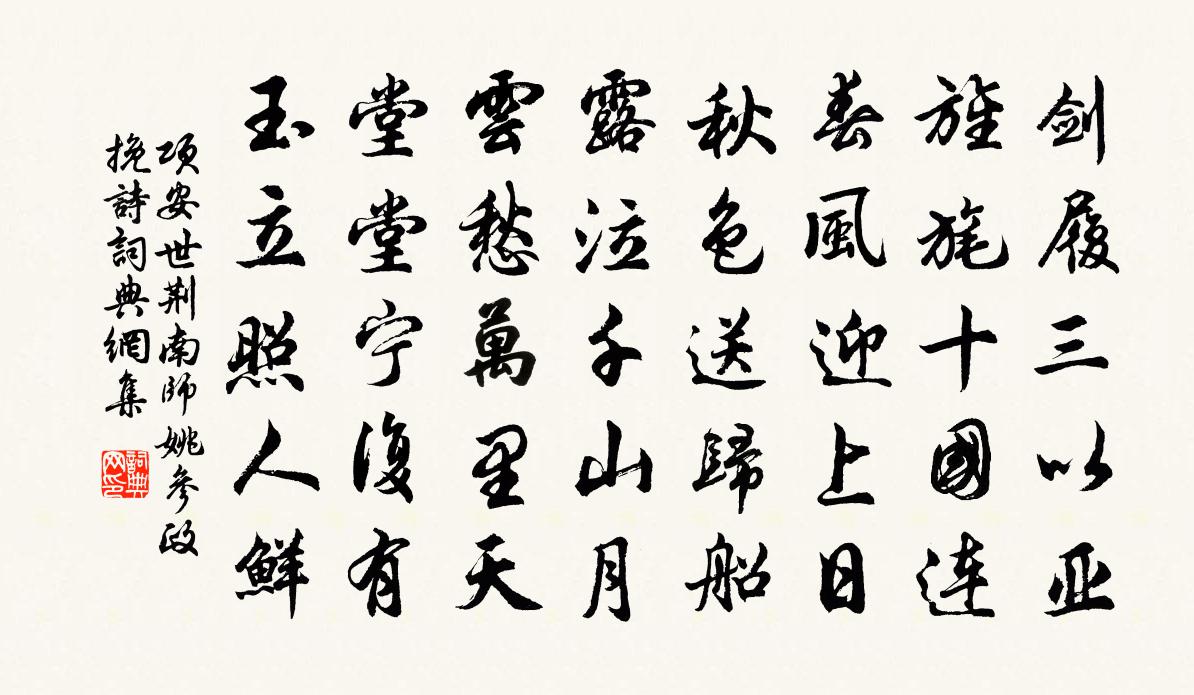 剑履三以亚
旌旄十國连
春風迎上日
秋色送歸船
露泣千山月
雲愁萬里天
堂堂宁復有
玉立照人鮮
项安世荆南師姚參政
挽詩詞典網集
詞典网印